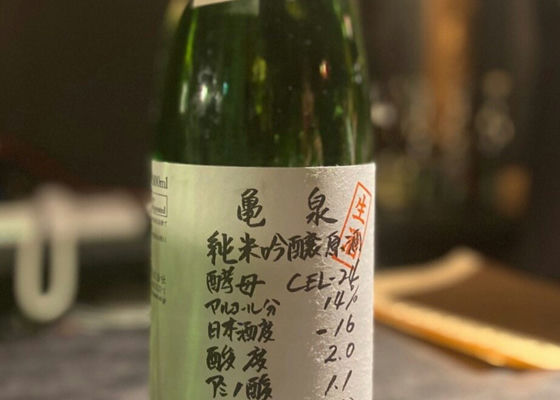 亀泉
生酒
純米吟醸原酒
酵母 CEL-24
アルコール分 14%
日本酒度 -16
酸度 2.0
アミノ酸 1.1